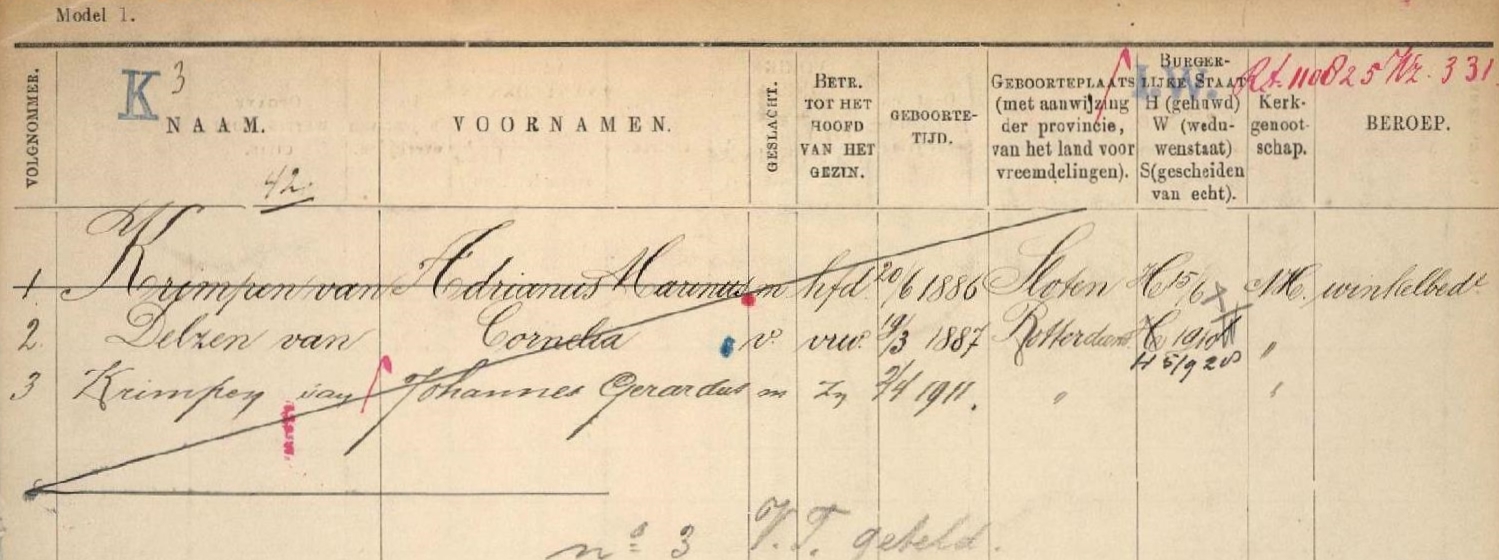 Model 1.
K 3
Rt. 110825 Wz. 331
VOLGNOMMER.
NAAM.
42.
VOORNAMEN.
GESLACHT.
BETR. TOT HET HOOFD VAN HET GEZIN.
GEBOORTE-TIJD.
GEBOORTEPLAATS (met aanwijzing der provincie, van het land voor vreemdelingen).
BURGER-LIJKE STAAT H (gehuwd) W (wedu-wenstaat) S (gescheiden van echt).
Kerk-genoot-schap.
BEROEP.
1. Krimpen van Adrianus Marinus m hfd 20/6 1886 Sloten H 15/6 NH. winkelbedt.
2. Delzen van Cornelia v. vrw. 19/3 1887 Rotterdam H 1910 "
H 5/9 20
3 Krimpen van Johannes Gerardus m zn 1911. " "
no 3 V.T. geteld.